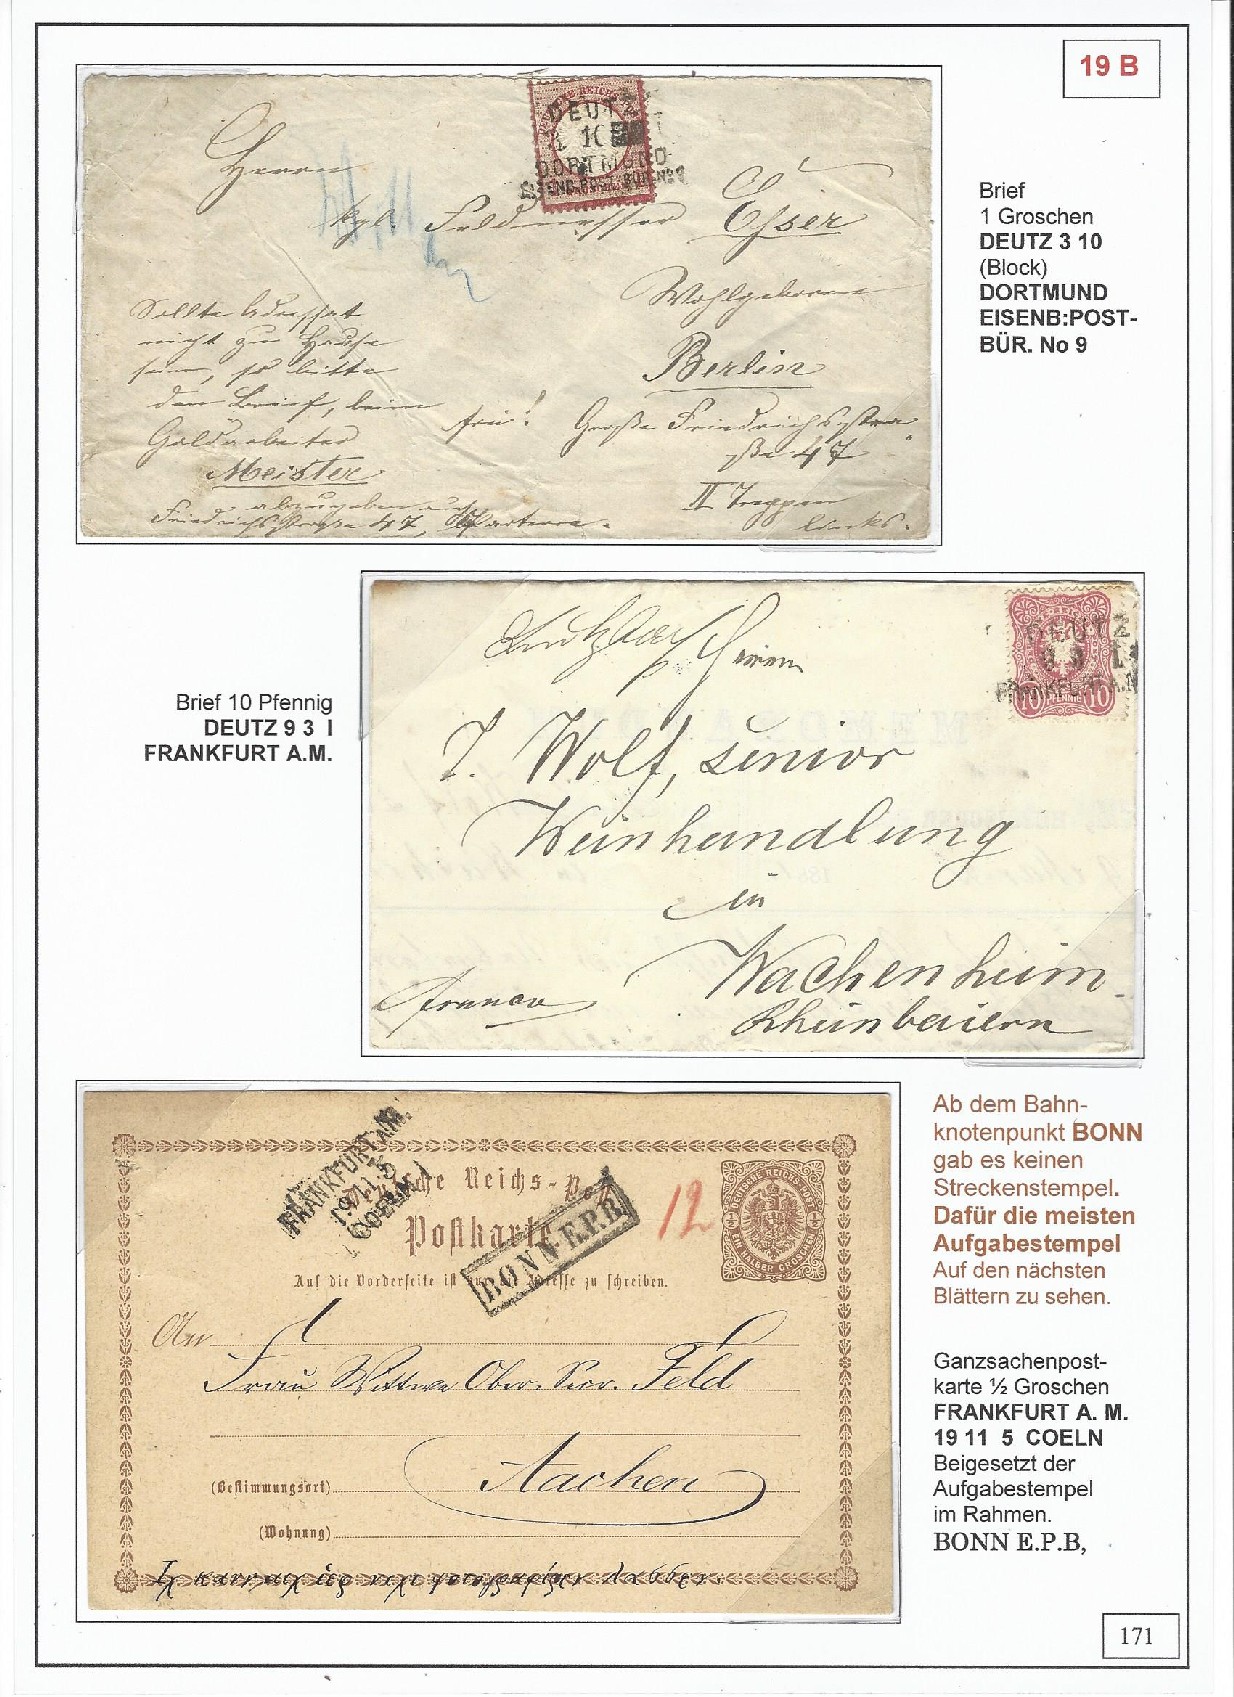 19 B
DEUTZ
DORTMUND
EISENB.POST.BÜR.No9
Herrn
kgl. Feldmesser Esser
Wohlgeboren
Berlin
Große Friedrichsstra
ße 47
II Treppen
links.
frei!
Sollte Adressat
nicht zu Hause
sein, so bitte
den Brief, beim
Goldarbeiter
Meister
abzugeben
Friedrichsstraße 47, Parterre.
Brief
1 Groschen
DEUTZ 3 10
(Block)
DORTMUND
EISENB:POST-
BÜR. No 9
Brief 10 Pfennig
DEUTZ 9 3 I
FRANKFURT A.M.
DEUTZ
9 3 I
FRANKFURT A.M
10 PFENNIG 10
Herrn
J. Wolf, senior
Weinhandlung
in
Wachenheim
Rheinbaiern
franco
FRANKFURT A.M.
19 11 5
COELN
Deutsche Reichs-Post
Postkarte
BONN E.P.B.
12
DEUTSCHE REICHS-POST
EIN HALBER GROSCHEN
Auf die Vorderseite ist nur die Adresse zu schreiben.
An
Frau Wittwe Ober. Feld
Aachen
(Bestimmungsort)
(Wohnung)
Ab dem Bahn-
knotenpunkt BONN
gab es keinen
Streckenstempel.
Dafür die meisten
Aufgabestempel
Auf den nächsten
Blättern zu sehen.
Ganzsachenpost-
karte ½ Groschen
FRANKFURT A. M.
19 11 5 COELN
Beigesetzt der
Aufgabestempel
im Rahmen.
BONN E.P.B,
171